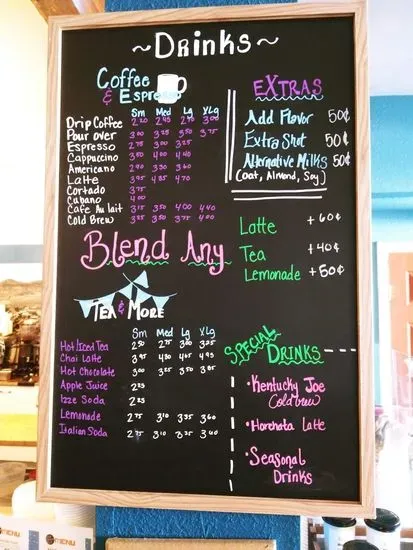 ~Drinks~
Coffee
& Espresso
Sm Med Lg XLg
Drip Coffee 2.20 2.40 2.70 3.00
Pour over 3.00 3.25 3.50 3.75
Espresso 2.75 3.00 3.25
Cappuccino 3.50 4.00 4.40
Americano 2.90 3.30 3.60
Latte 3.95 4.35 4.70
Cortado 3.75
Cubano 4.00
Cafe Au lait 3.15 3.50 4.00 4.40
Cold Brew 3.25 3.50 3.75 4.00
EXTRAS
Add Flavor 50¢
Extra Shot 50¢
Alternative Milks 50¢
(Oat, Almond, Soy)
Blend Any
Latte +60¢
Tea +40¢
Lemonade +50¢
Tea & More
Sm Med Lg XLg
Hot/Iced Tea 2.50 2.75 3.00 3.25
Chai Latte 3.95 4.40 4.65 4.95
Hot Chocolate 3.00 3.25 3.50 3.85
Apple Juice 2.25
Izze Soda 2.25
Lemonade 2.75 3.10 3.35 3.60
Italian Soda 2.75 3.10 3.35 3.60
Special
Drinks
•Kentucky Joe
Cold brew
•Horchata Latte
•Seasonal
Drinks
MENU
MENU